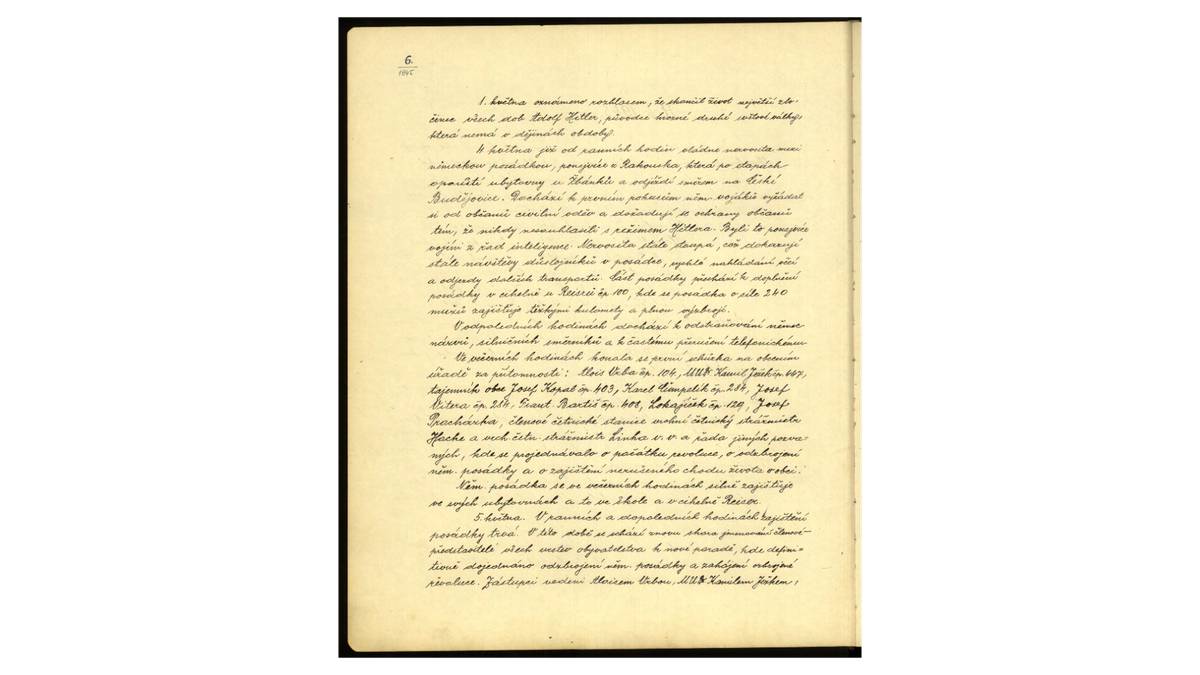 6.
1945
1. května oznámeno rozhlasem, že skončil život největší zlo-
činec všech dob Adolf Hitler, původce hrozné druhé světové války,
která nemá v dějinách obdoby.
4 května již od ranních hodin vládne nervosita mezi
německou posádkou, ponejvíce z Rakouska, která po etapách
opouští ubytovny u Žbánků a odjíždí směrem na České
Budějovice. Dochází k prvním pokusům něm. vojáků vyžádat
si od občanů civilní oděv a dožadují se ochrany občanů
tím, že nikdy nesouhlasili s režimem Hitlera. Byli to ponejvíce
vojíni z řad inteligence. Nervosita stále stoupá, což dokazují
stálé návštěvy důstojníků v posádce, rychlé nakládání věcí
a odjezdy dalších transportů. Část posádky přechází k doplnění
posádky v cihelně u Reisrů čp. 100, kde se posádka o síle 240
mužů zajišťuje těžkými kulomety a plnou výzbrojí.
V odpoledních hodinách dochází k odstraňování němec
názvů, silničních směrníků a k častému přerušení telefonickému
Ve večerních hodinách konala se první schůzka na obecním
úřadě za přítomnosti: Alois Vrba čp. 104, MUDr Kamil Ježek čp. 447,
tajemník obce Josef Kopal čp. 403, Karel Cimpelík čp. 284, Josef
Vitera čp. 284, Frant. Bartiš čp. 408, Lokajíček čp. 129, Josef
Procházka, členové četnické stanice vrchní četnický strážmistr
Hacke a vrch. četn. strážmistr Linha v. v. a řada jiných pozva-
ných, kde se projednávalo o počátku revoluce, o odzbrojení
něm. posádky a o zajištění nerušeného chodu života v obci.
Něm. posádka se ve večerních hodinách silně zajišťuje
ve svých ubytovnách a to ve škole a v cihelně Reisr.
5. května. V ranních a dopoledních hodinách zajištění
posádky trvá. V této době se schází znovu shora jmenovaní členové-
představitelé všech vrstev obyvatelstva k nové poradě, kde defini-
tivně dojednáno odzbrojení něm. posádky a zahájení ozbrojené
revoluce. Zástupci vedeni Aloisem Vrbou, MUDr Kamilem Ježkem,